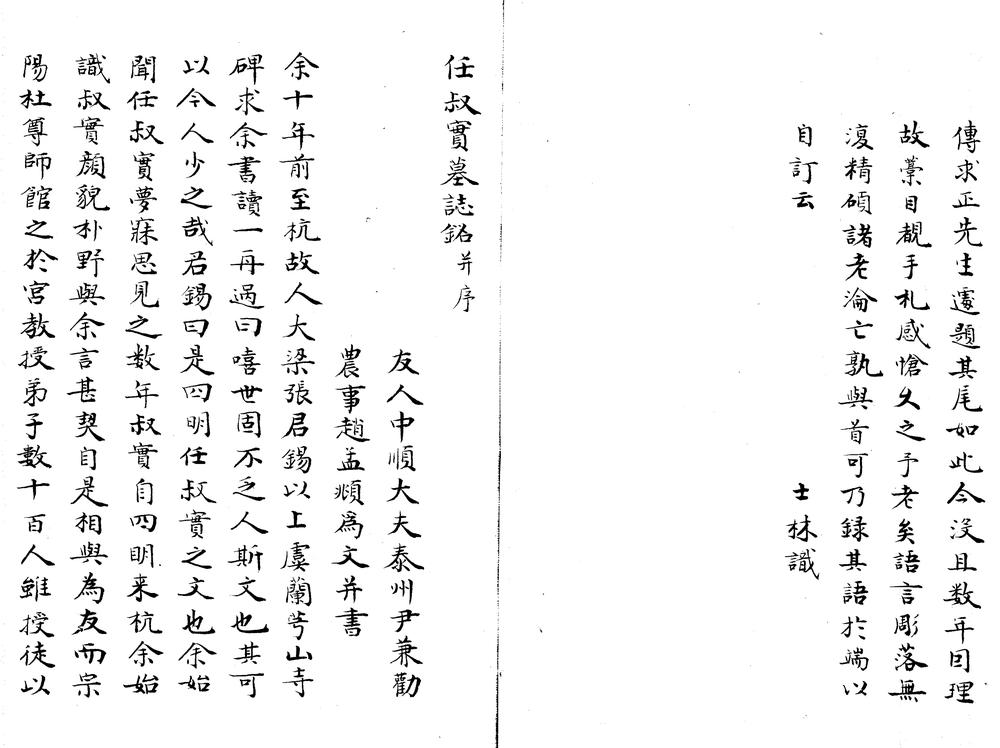 傳求正先生遽題其尾如此今没且数年囙理
故藁目覩手札感愴久之予老矣語言彫落無
復精碩諸老淪亡孰與首可乃録其語於端以
自訂云
士林識
任叔實墓誌銘并序
友人中順大夫泰州尹兼勸
農事趙孟頫為文并書
余十年前至杭故人大梁張君錫以上虞蘭芎山寺
碑求余書讀一再過曰嘻世固不乏人斯文也其可
以今人少之哉君錫曰是四明任叔實之文也余始
聞任叔實夢寐思見之数年叔實自四明来杭余始
識叔實顔貌朴野與余言甚契自是相與為友而宗
陽杜尊師館之於宮教授弟子數十百人雖授徒以